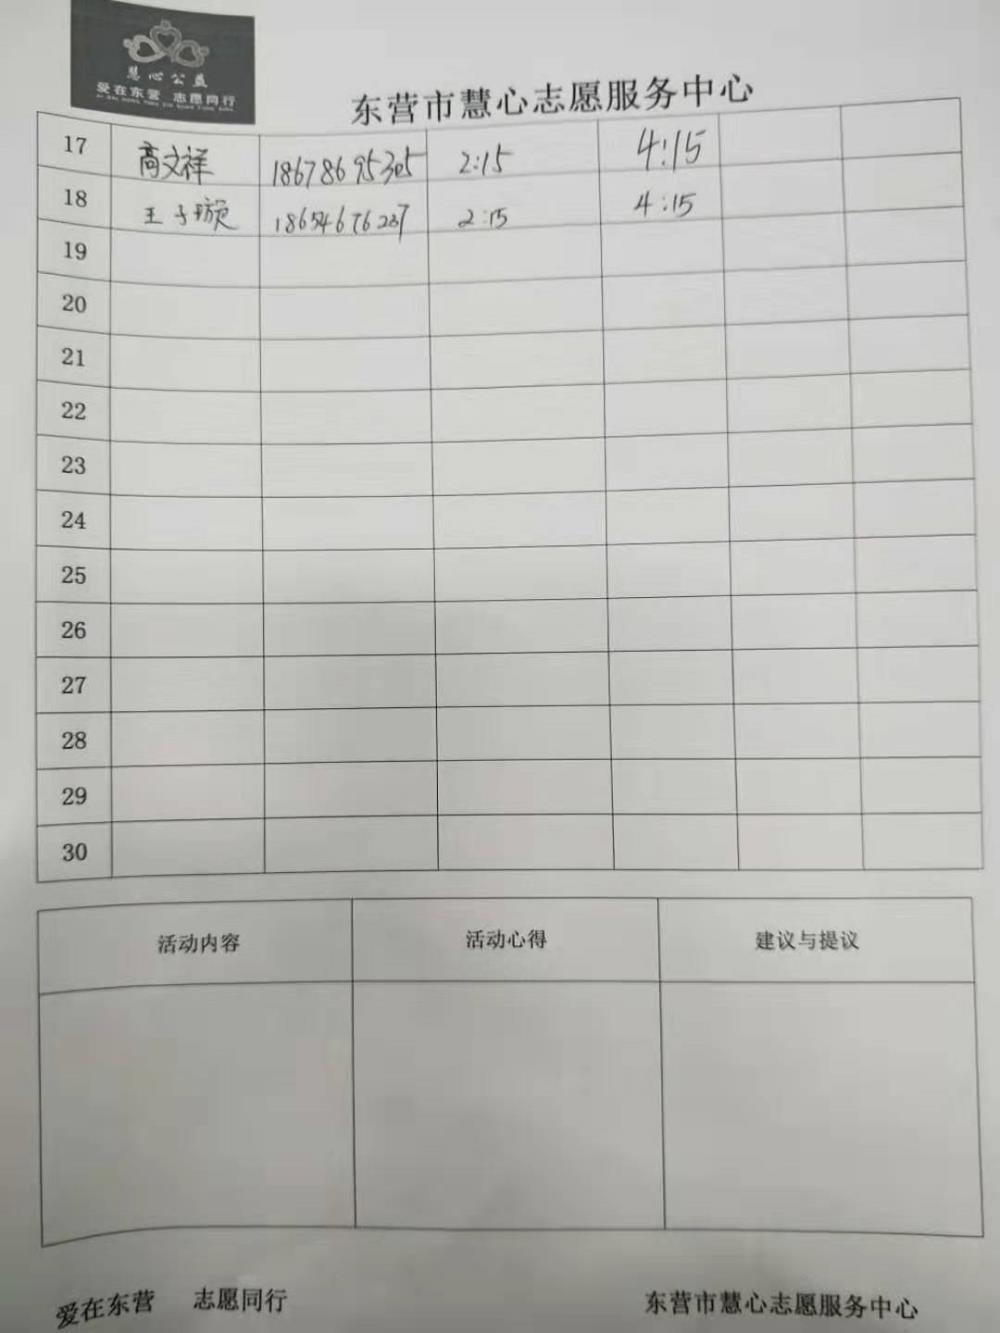 慧心公益
爱在东营 志愿同行
东营市慧心志愿服务中心
17 高文祥 18678695305 2:15 4:15
18 王子璇 18654676237 2:15 4:15
19
20
21
22
23
24
25
26
27
28
29
30
活动内容 活动心得 建议与提议
爱在东营 志愿同行 东营市慧心志愿服务中心